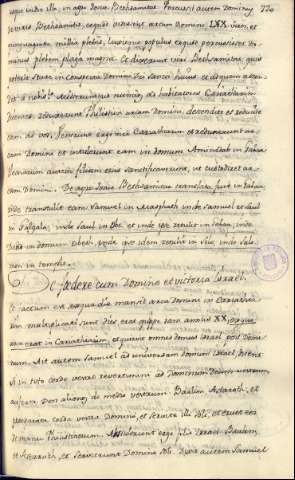 in agro Josue Bethsamitæ. Percussit autem Dominus 220
de viris Bethsamitis, eo quod vidissent arcam Domini LXX viros, et
quinquaginta millia plebis, luxitque populus eo quod percussisset Do-
minus plebem plaga magna. Et dixerunt viri Bethsamitæ, quis
poterit stare in conspectu Domini Dei sancti huius, et ad quem ascen-
det a nobis? Miseruntque nuncios ad habitatores Cariathiarim
dicentes, reduxerunt Philistiim arcam Domini, descendite et reducite
eam ad vos. Venerunt ergo viri Cariathiarim, et reduxerunt ar-
cam Domini et intulerunt eam in domum Aminadab in Gabaa
Eleazarum autem filium eius sanctificaverunt, ut custodiret ar-
cam Domini. De agro Josue Bethsamitæ translata fuit in Gabaa
inde transtulit eam Samuel in Masphath inde Samuel et Saul
in Galgala, inde Saul in Nobe, et inde retulit in Gabaa, inde
David in domum Obed, inde idem retulit in Sion, inde Salo-
mon in templo.
De fœdere cum Domino et victoria Israel.
Et factum est ex qua die mansit arca Domini in Cariathia-
rim multiplicati sunt dies, erat quippe iam annus XX, ex quo
arca erat in Cariathiarim, et quievit omnis domus Israel post Domi-
num. Ait autem Samuel ad universam domum Israel, dicens
si in toto corde vestro revertimini ad Dominum Deum vestrum,
auferte Deos alienos de medio vestrum, Baalim, Astaroth, et
præparate corda vestra Domino, et servite illi soli, et eruet vos
de manu Philistinorum. Abstulerunt ergo filii Israel Baalim
et Astaroth, et servierunt Domino soli. Dixit autem Samuel